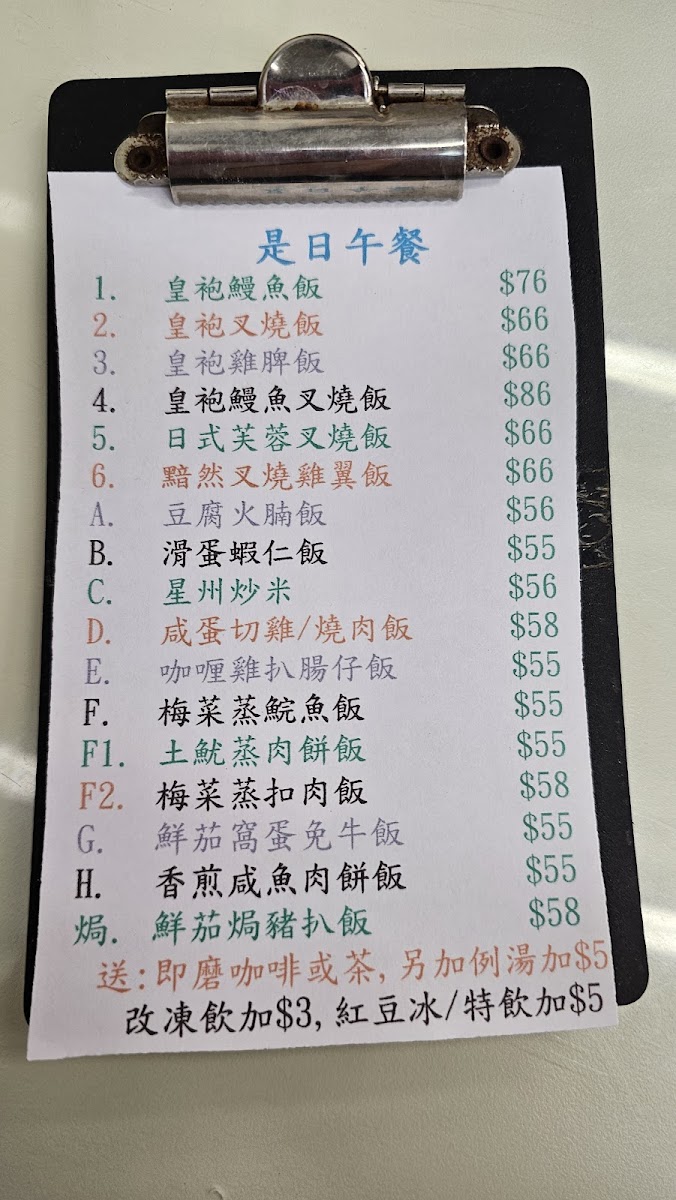 是日午餐
1. 皇袍鰻魚飯 $76
2. 皇袍叉燒飯 $66
3. 皇袍雞脾飯 $66
4. 皇袍鰻魚叉燒飯 $86
5. 日式芙蓉叉燒飯 $66
6. 黯然叉燒雞翼飯 $66
A. 豆腐火腩飯 $56
B. 滑蛋蝦仁飯 $55
C. 星州炒米 $56
D. 咸蛋切雞/燒肉飯 $58
E. 咖喱雞扒腸仔飯 $55
F. 梅菜蒸鯇魚飯 $55
F1. 土魷蒸肉餅飯 $55
F2. 梅菜蒸扣肉飯 $58
G. 鮮茄窩蛋免牛飯 $55
H. 香煎咸魚肉餅飯 $55
焗. 鮮茄焗豬扒飯 $58
送:即磨咖啡或茶,另加例湯加$5
改凍飲加$3,紅豆冰/特飲加$5